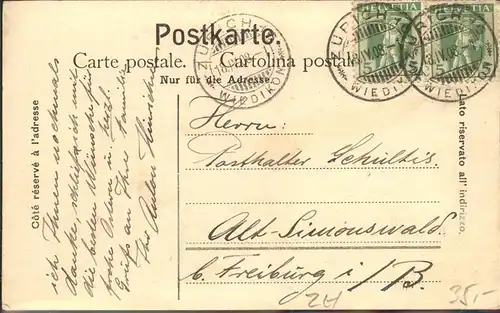 Postkarte.
Carte postale. Cartolina postale
Nur für die Adresse.
Côté réservé à l'adresse
lato riservato all' indirizzo.
HELVETIA
HELVETIA
ZÜRICH
WIEDIKON
ZÜRICH
13.IV.08
WIEDIKON
ZÜRICH
13.IV.08
WIEDIKON
Herrn:
Posthalter Schultis.
Alt-Simonswald
b. Freiburg i/B.
ich Ihnen nochmals
danke, schließe ich mit
die besten Wünsche für
frohe Ostern u. herzl.
Grüße an Ihre Familie
Ihr
ZH
35.-